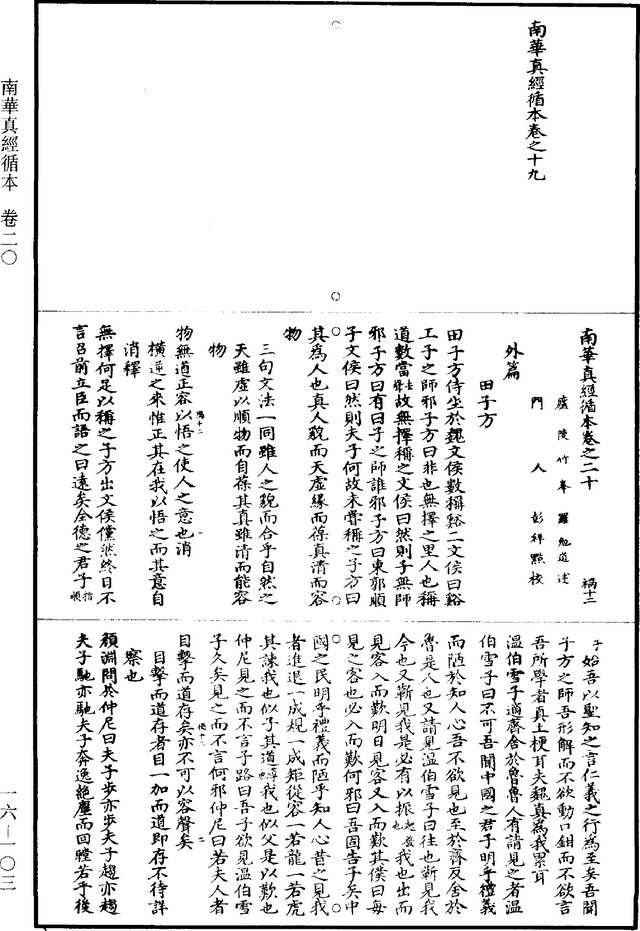 南華真經循本卷之十九
南華真經循本　卷二〇
一六—一〇三
南華真經循本卷之二十　禍十二
廬陵竹峯羅勉道述
門人彭祥點校
外篇
田子方
田子方侍坐於魏文侯數稱谿工文侯曰谿
工子之師邪子方曰非也無擇之里人也稱
道數當故無擇稱之文侯曰然則子無師
邪子方曰有曰子之師誰邪子方曰東郭順
子文侯曰然則夫子何故未嘗稱之子方曰
其為人也真人貌而天虛緣而葆真清而容
物
三句文法一同雖人之貌而合乎自然之
天雖虛以順物而自葆其真雖清而能容
物
物無道正容以悟之使人之意也消
橫逆之來惟正其在我以悟之而其意自
消釋
無擇何足以稱之子方出文侯儻然終日不
言召前立臣而語之曰遠矣全德之君子指順
子始吾以聖知之言仁義之行為至矣吾聞
子方之師吾形解而不欲動口鉗而不欲言
吾所學者真土梗耳夫魏真為我累耳
溫伯雪子適齊舍於魯魯人有請見之者溫
伯雪子曰不可吾聞中國之君子明乎禮義
而陋於知人心吾不欲見也至於齊反舍於
魯是人也又請見溫伯雪子曰往也蘄見我
今也又蘄見我是必有以振我也出而
見客入而歎明日見客又入而歎其僕曰每
見之客也必入而歎何邪曰吾固告子矣中
國之民明乎禮義而陋乎知人心昔之見我
者進退一成規一成矩從容一若龍一若虎
其諫我也似子其道我也似父是以歎也
仲尼見之而不言子路曰吾子欲見溫伯雪
子久矣見之而不言何邪仲尼曰若夫人者
目擊而道存矣亦不可以容聲矣
目擊而道存者目一加而道即存不待詳
察也
顏淵問於仲尼曰夫子步亦步夫子趨亦趨
夫子馳亦馳夫子奔逸絕塵而回瞠若乎後